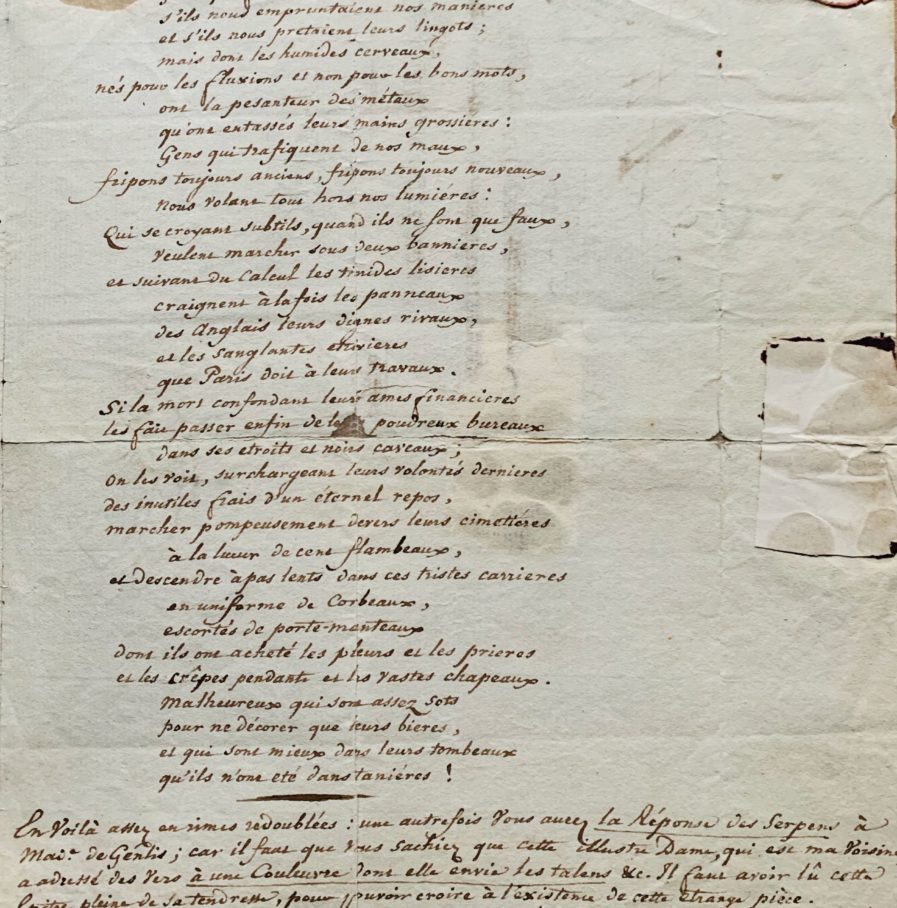 s'ils nous empruntaient nos manieres
et s'ils nous pretaient leurs lingots ;
mais dont les humides cerveaux,
nés pour les fluxions et non pour les bons mots,
ont la pesanteur des métaux
qu'ont entassés leurs mains grossieres :
Gens qui trafiquent de nos maux,
fripons toujours anciens, fripons toujours nouveaux,
nous volant tout hors nos lumiéres :
Qui se croyant subtils, quand ils ne sont que faux,
veulent marcher sous deux bannieres,
et suivant du Calcul les timides lisieres
craignent à la fois les panneaux
des Anglais leurs dignes rivaux,
et les sanglantes etrivieres
que Paris doit à leurs travaux.
Si la mort confondant leurs ames financieres
les fait passer enfin de poudreux bureaux
dans ses etroits et noirs caveaux ;
On les voit, surchargeant leurs volontés dernieres
des inutiles frais d'un éternel repos,
marcher pompeusement devers leurs cimetiéres
à la lueur de cent flambeaux,
et descendre à pas lents dans ces tristes carrieres
en uniforme de Corbeaux,
escortés de porte-manteaux
dont ils ont acheté les pleurs et les prieres
et les crêpes pendants et les vastes chapeaux.
Malheureux qui sont assez sots
pour ne décorer que leurs bieres,
et qui sont mieux dans leurs tombeaux
qu'ils n'ont eté dans taniéres !
En voilà assez en rimes redoublées : une autrefois vous aurez la Réponse des Serpens à
Mad.e de Genlis ; car il faut que vous sachiez que cette illustre Dame, qui est ma voisine
a adressé des vers à une Couleuvre dont elle envie les talens &c. Il faut avoir lû cette
pleine de sa tendresse, pour pouvoir croire à l'existence de cette étrange pièce.